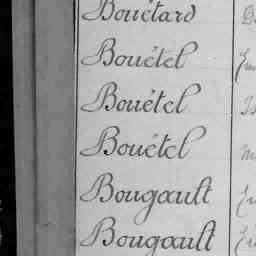 Bouétard
Bouétel
Bouétel
Bouétel
Bougoault
Bougoault